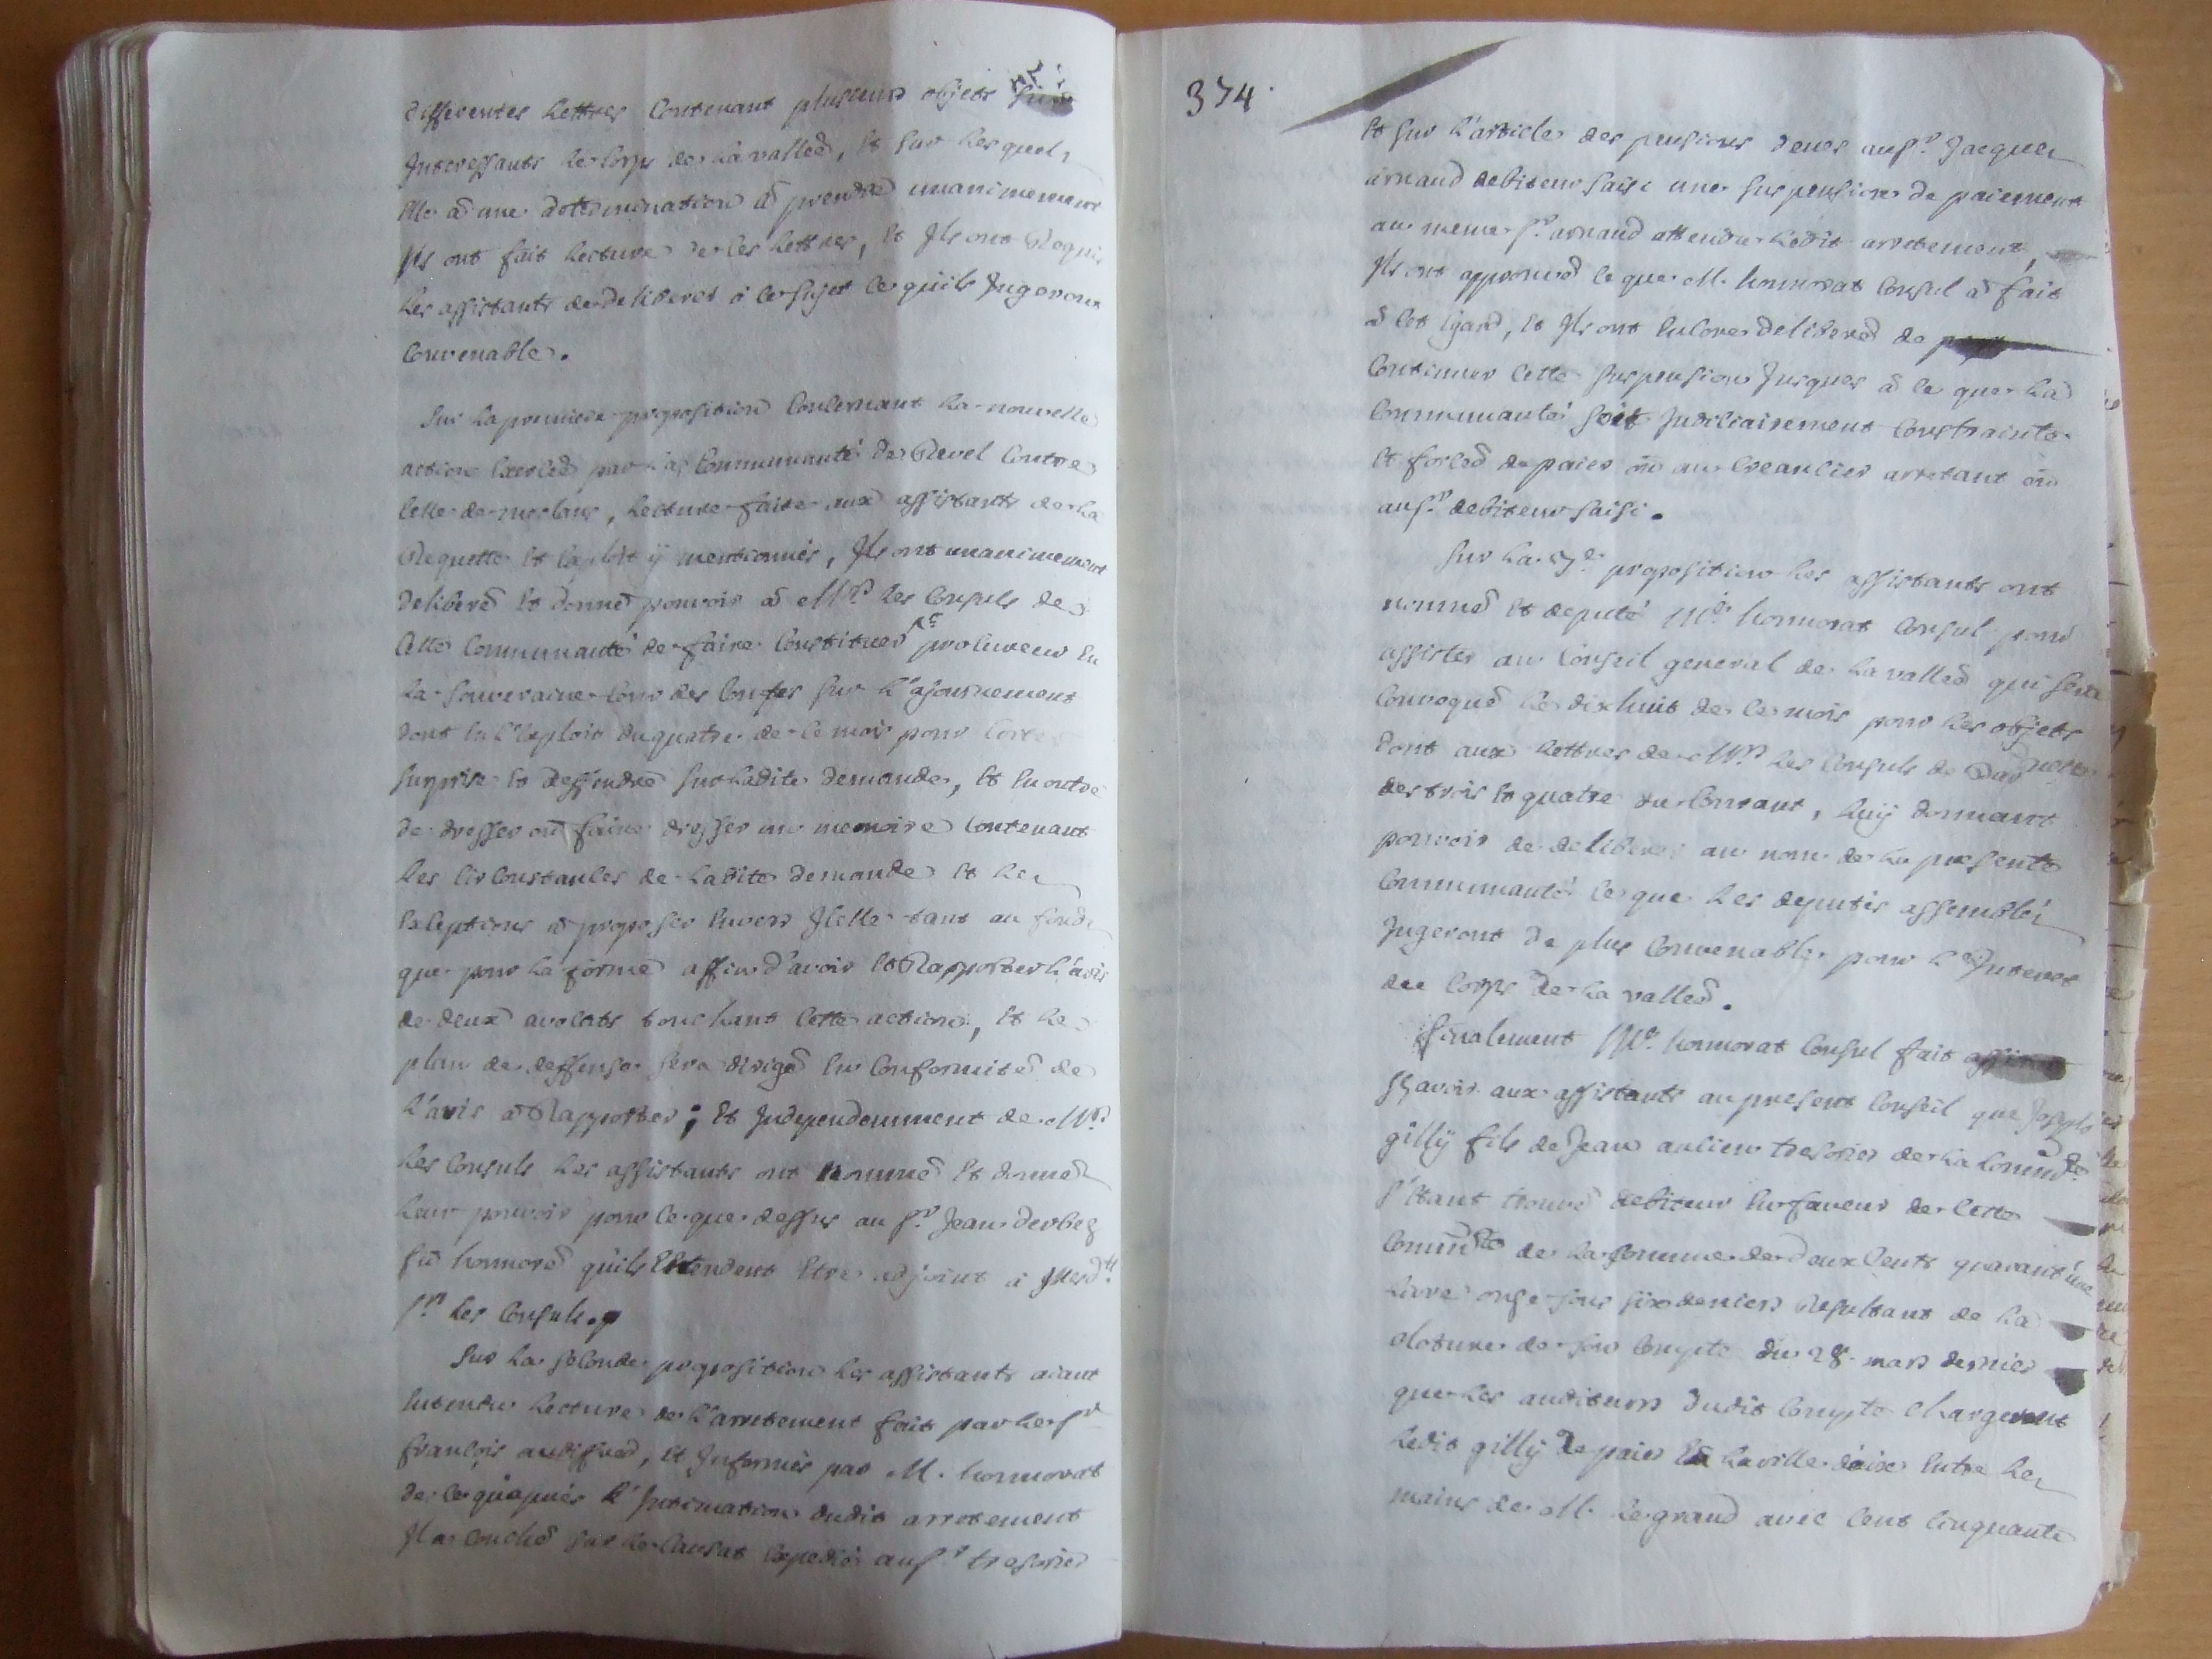 differentes Lettres Contenant plusieurs objets
Interessants Le Corps de La valleé, Et Sur Lesquels
Elle à une determination à prendre unanimement
Ils ont fait Lecture de Ces Lettres, Et Ils ont Requis
Les assistants de deliberer à Ce Sujet Ce quils Jugeront
Convenable.
Sur La premiere proposition Concernant La nouvelle
action Exerceé par La Communauté de Revel Contre
Celle de meolans, Lecture faite aux assistants de La
Requette Et Exploit ÿ mentionnés, Ils ont unanimement
deliberé Et donné pouvoir à Mrs Les Consuls de
Cette Communauté de faire Constituer procureur En
La Souveraine Cour des Comptes Sur L'ajournement
dont En L'Exploit du quatre de Ce mois pour Eviter
Surprise Et deffendre Sur Ladite demande, Et En outre
de dresser ou faire dresser un memoire Contenant
Les Circonstances de Ladite demande Et Les
Exceptions à proposer Envers Icelle tant au fonds
que pour La forme affin d'avoir Et Rapporter L'avis
de deux avocats touchant Cette action, Et Le
plan de deffense Sera dirigé En Conformité de
L'avis à Rapporter; Et Independemment de Mrs
Les Consuls Les assistants ont nommé Et donné
Leur pouvoir pour Ce que dessus au Sr Jean derbez
feu honnoré quils Entendent Etre adjoint à Mesdts
Srs Les Consuls.
Sur La Seconde proposition Les assistants aiant
Entendu Lecture de L'arretement fait par Le Sr
françois audiffred, Et Informés par M. honnorat
de Ce qu'aprés L'Intimation dudit arretement
Il a Couché Sur Le Mandat Expedié au Sr tresorier
374
Et Sur L'article des pensions deues au Sr Jacques
arnaud debiteur Saisi une Suspension de paiement
au meme Sr arnaud attendu Ledit arretement,
Ils ont approuvé Ce que M. honnorat Consul à fait
à Cet Egard, Et Ils ont Encore deliberé de
Continuer Cette Suspension Jusques à Ce que La
Communauté Soit Judiciairement Contrainte
Et forceé de paier ou au Creancier arretant ou
au Sr debiteur Saisi.
Sur La 3e proposition Les assistants ont
nommé Et deputé Me honnorat Consul pour
assister au Conseil general de La valleé qui Sera
Convoqué Le dix huit de Ce mois pour Les objets
dont aux Lettres de Mrs Les Consuls de
des trois Et quatre du Courant, Luÿ donnant
pouvoir de deliberer au nom de La presente
Communauté Ce que Les deputés assemblés
Jugeront de plus Convenable pour L'Interet
du Corps de La valleé.
finalement Me honnorat Consul fait
Sçavoir aux assistants au present Conseil que Joseph
gillÿ fils de Jean ancien tresorier de La Commté
S'Etant trouvé debiteur En faveur de Cette
Commté de La Somme de deux Cents quarant'une
Livre onze Sous six deniers Resultant de La
cloture de Son Compte du 28. mars dernier
que Les auditeurs dudit Compte chargerent
Ledit gillÿ de paier En La ville d'aix Entre Les
mains de M. Le grand avec Cent Cinquante